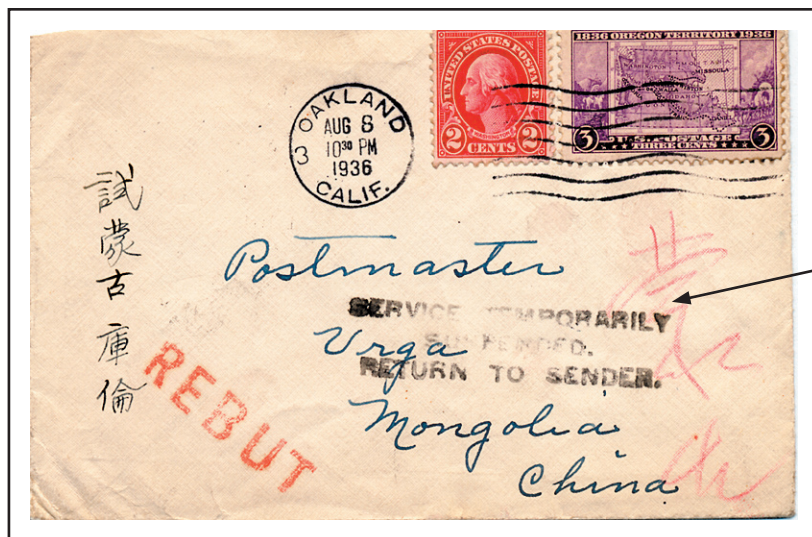 UNITED STATES POSTAGE
2 CENTS 2
1836 OREGON TERRITORY 1936
MISSOULA
3 U.S. POSTAGE 3
THREE CENTS
OAKLAND
AUG 8
10³⁰ PM
1936
CALIF.
3
試蒙古庫倫
Postmaster
Urga
Mongolia
China
SERVICE TEMPORARILY
SUSPENDED.
RETURN TO SENDER.
REBUT